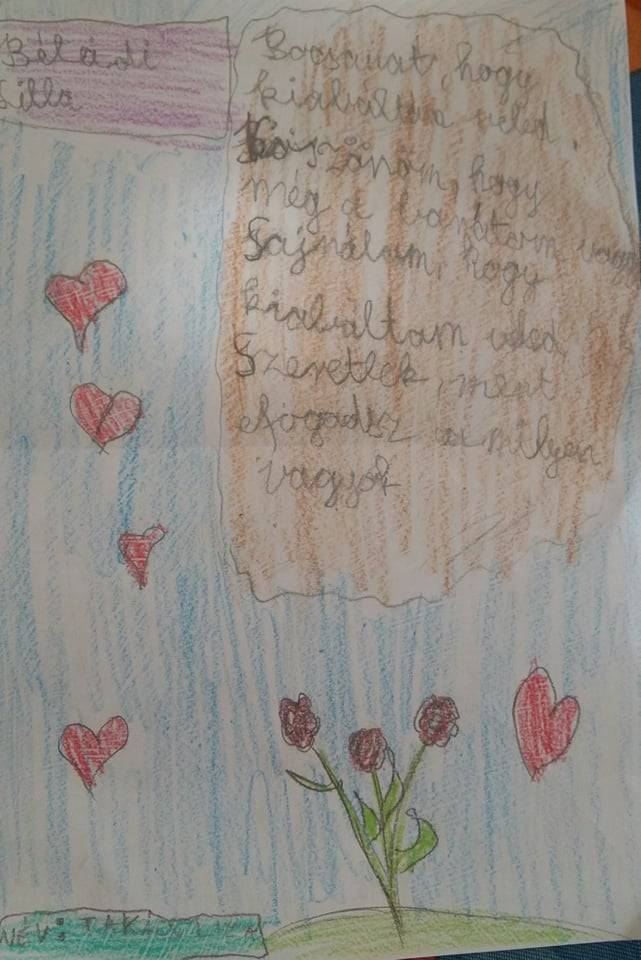 Béládi
Bocsánat, hogy
kiabáltam veled.
Köszönöm, hogy
még a barátom vagy
Sajnálom, hogy
kiabáltam veled
Szeretlek, mert
efogadsz a milyen
vagyok
NÉV: